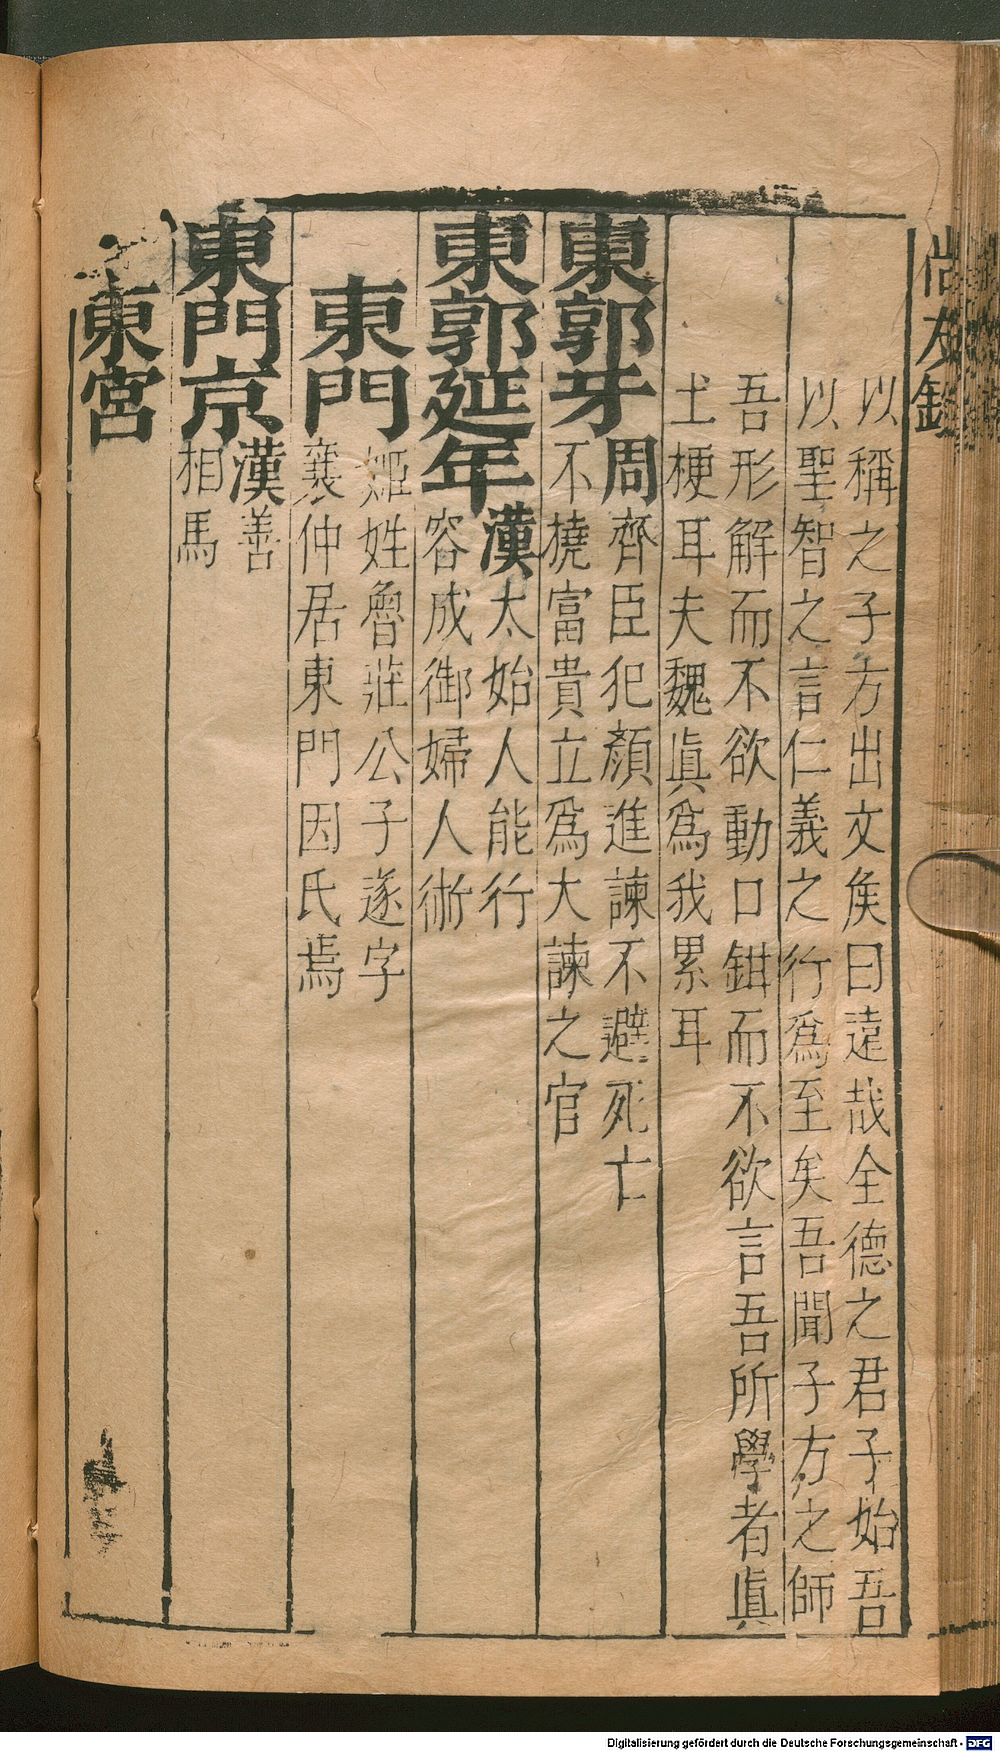 尚友錄
以稱之子方出文矦曰遠哉全德之君子始吾
以聖智之言仁義之行爲至矣吾聞子方之師
吾形解而不欲動口鉗而不欲言吾所學者眞
土梗耳夫魏眞爲我累耳
東郭牙
周齊臣犯顏進諫不避死亡
不撓富貴立爲大諫之官
東郭延年
漢太始人能行
容成御婦人術
東門
姬姓魯莊公子遂字
襄仲居東門因氏焉
東門京
漢善
相馬
東宮
Digitalisierung gefördert durch die Deutsche Forschungsgemeinschaft - DFG